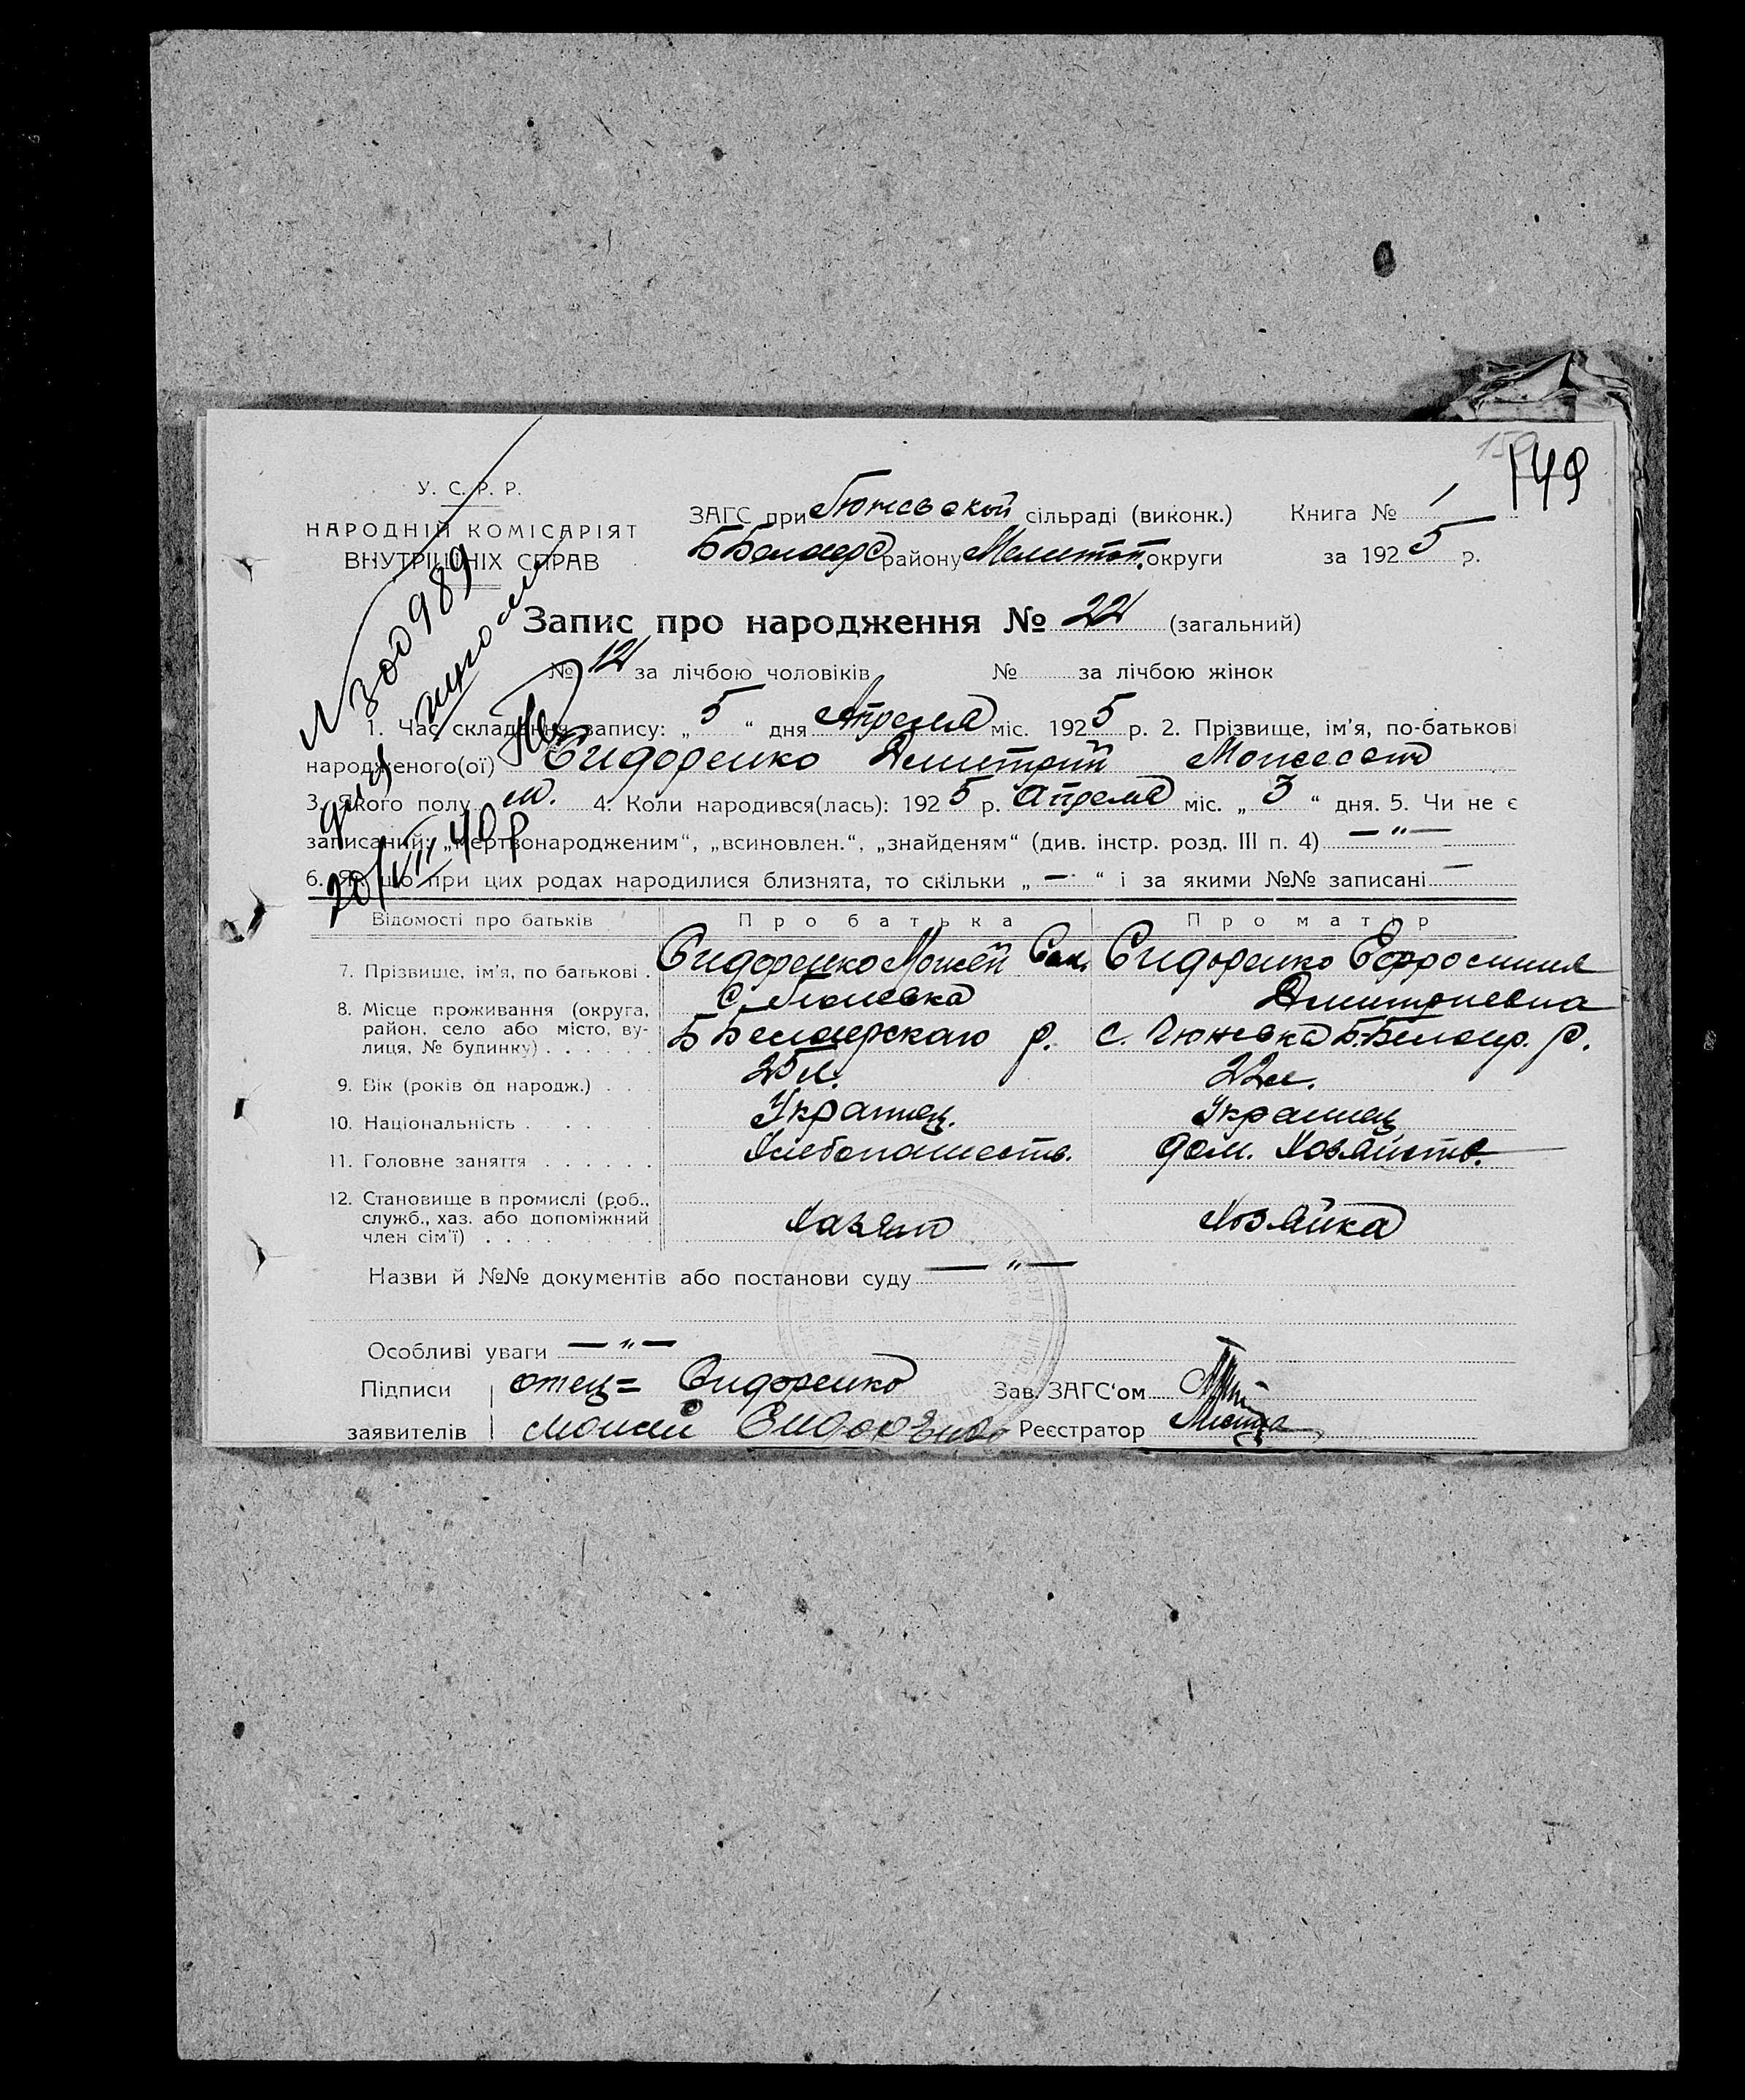 149
У. С. Р. Р.
НАРОДНІЙ КОМІСАРІЯТ
ВНУТРІШНІХ СПРАВ
ЗАГС при Гюневской сільраді (виконк.) Книга № 1
Б Белозерс району Мелитоп. округи за 1925 р.
Запис про народження № 22 (загальний)
№ 12 за лічбою чоловіків № за лічбою жінок
1. Час складання запису: „ 5 “ дня Апреля міс. 1925 р. 2. Прізвище, ім’я, по-батькові
народженого(ої) Сидоренко Дмитрий
3. Якого полу м. 4. Коли народився(лась): 1925 р. Апреля міс. „ 3 “ дня. 5. Чи не є
записаний: „мертвонародженим“, „всиновлен.“, „знайденям“ (див. інстр. розд. III п. 4) — „ —
6. Як що при цих родах народилися близнята, то скільки „ — “ і за якими №№ записані —
N 300989
20/VII 40 р
Відомості про батьків Про батька Про матір
7. Прізвище, ім’я, по батькові . Сидоренко Мойсей Сидоренко Ефросиния
Дмитриевна
8. Місце проживання (округа, район, село або місто, ву-
лиця, № будинку) . . . . . . С. Гюневка Б Белозерского р. с. Гюневка Б. Белозер. р.
9. Вік (років од народж.) . . . 25 л. 22 л.
10. Національність . . . . Украинец. Украинец
11. Головне заняття . . . . . . Хлебопашеств. дом. Хозяйств.
12. Становище в промислі (роб.,
служб., хаз. або допоміжний
член сім’ї) . . . . . . . . Хазяин Хозяйка
Назви й №№ документів або постанови суду — „ —
Особливі уваги — „ —
Підписи отец = Сидоренко Зав. ЗАГС‘ом
заявителів Реєстратор